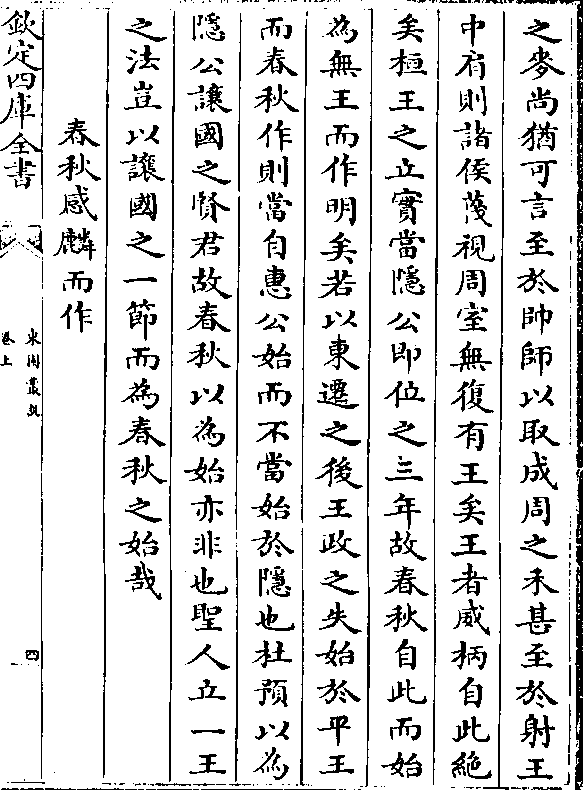 之麥尚猶可言至於帥師以取成周之禾甚至於射王
中肩則諸侯蔑視周室無復有王矣王者威柄自此絶
矣桓王之立實當隱公即位之三年故春秋自此而始
為無王而作明矣若以東遷之後王政之失始於平王
而春秋作則當自惠公始而不當始於隱也杜預以為
隱公讓國之賢君故春秋以為始亦非也聖人立一王
之法豈以讓國之一節而為春秋之始哉
春秋感麟而作
欽定四庫全書
卷上
四